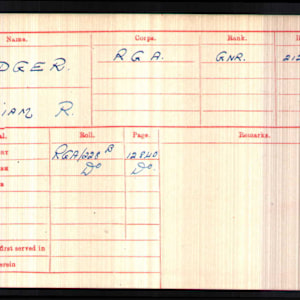 Name. Corps. Rank.
DGER. R G A. GNR. 212
IAM R.
al. Roll. Page. Remarks.
RGA/228 B 12840
Do Do.
first served in
erein